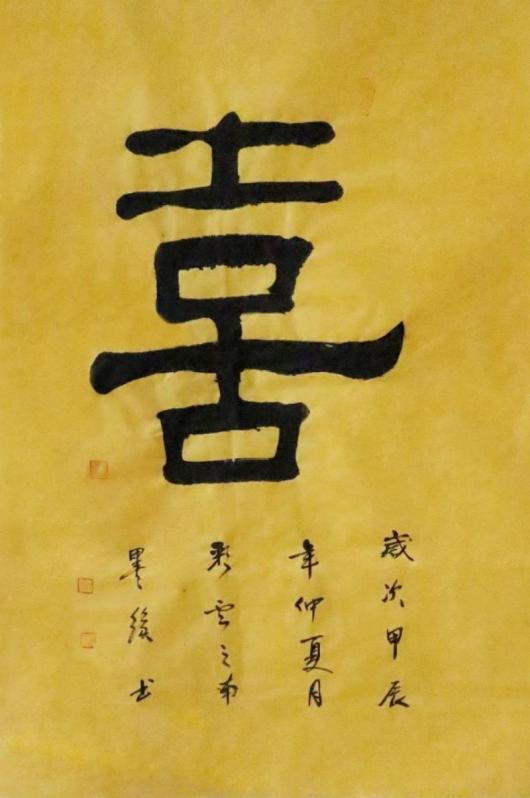 喜
歲次甲辰
年仲夏月
彩云之南
墨书